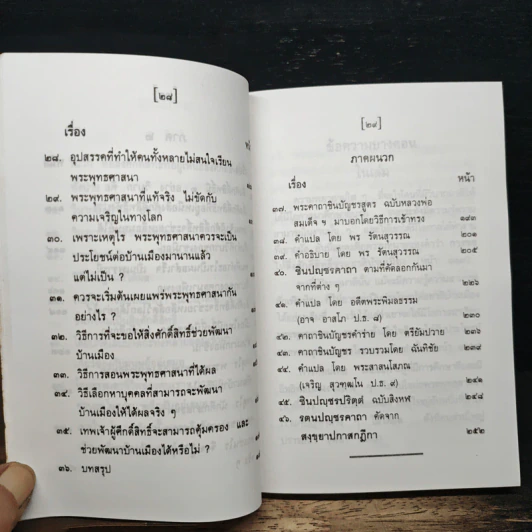 [๒๘]
เรื่อง
๒๘. อุปสรรคที่ทำให้คนทั้งหลายไม่สนใจเรียน
พระพุทธศาสนา
๒๙. พระพุทธศาสนาที่แท้จริง ไม่ขัดกับ
ความเจริญในทางโลก
๓๐. เพราะเหตุไร พระพุทธศาสนาควรจะเป็น
ประโยชน์ต่อบ้านเมืองมานานแล้ว
แต่ไม่เป็น ?
๓๑. ควรจะเริ่มต้นเผยแพร่พระพุทธศาสนากัน
อย่างไร ?
๓๒. วิธีการที่จะขอให้สิ่งศักดิ์สิทธิ์ช่วยพัฒนา
บ้านเมือง
๓๓. วิธีการสอนพระพุทธศาสนาที่ได้ผล
๓๔. วิธีเลือกหาบุคคลที่สามารถจะพัฒนา
บ้านเมืองให้ได้ผลจริง ๆ
๓๕. เทพเจ้าผู้ศักดิ์สิทธิ์จะสามารถคุ้มครอง และ
ช่วยพัฒนาบ้านเมืองได้หรือไม่ ?
๓๖. บทสรุป
[๒๙]
ภาคผนวก
เรื่อง หน้า
๓๗. พระคาถาชินบัญชรสูตร ฉบับหลวงพ่อ
สมเด็จ ฯ มาบอกโดยวิธีการเข้าทรง ๑๙๓
๓๘. คำแปล โดย พร รัตนสุวรรณ ๒๐๑
๓๙. คำอธิบาย โดย พร รัตนสุวรรณ ๒๐๕
๔๐. ชินปญฺชรคาถา ตามที่คัดลอกกันมา
จากที่ต่าง ๆ ๒๒๖
๔๑. คำแปล โดย อดีตพระพิมลธรรม
(อาจ อาสโภ ป.ธ. ๘) ๒๓๐
๔๒. คาถาชินบัญชรคำร่าย โดย ตรียัมปวาย ๒๓๖
๔๓. คาถาชินบัญชร รวบรวมโดย ฉันทิชัย ๒๓๙
๔๔. คำแปล โดย พระสาสนโสภณ
(เจริญ สุวฑฺฒโน ป.ธ. ๙) ๒๔๒
๔๕. ชินปญฺชรปริตฺตํ ฉบับสิงหฬ ๒๔๘
๔๖. รตนปญฺชรคาถา คัดจาก
สงฺขฺยาปกาสกฎีกา ๒๕๒